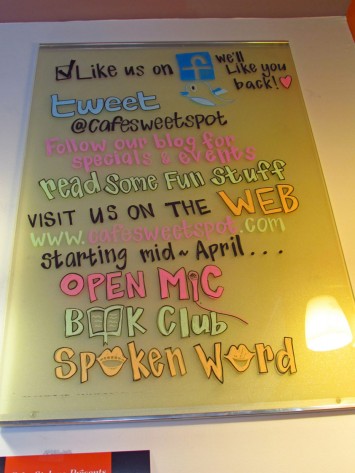 Like us on f we'll Like you back!
tweet
@cafesweetspot
Follow our blog for specials & events
read Some Fun Stuff
VISIT US ON THE WEB
www.cafesweetspot.com
starting mid~April...
OPEN MiC
BOOK Club
Spoken Word